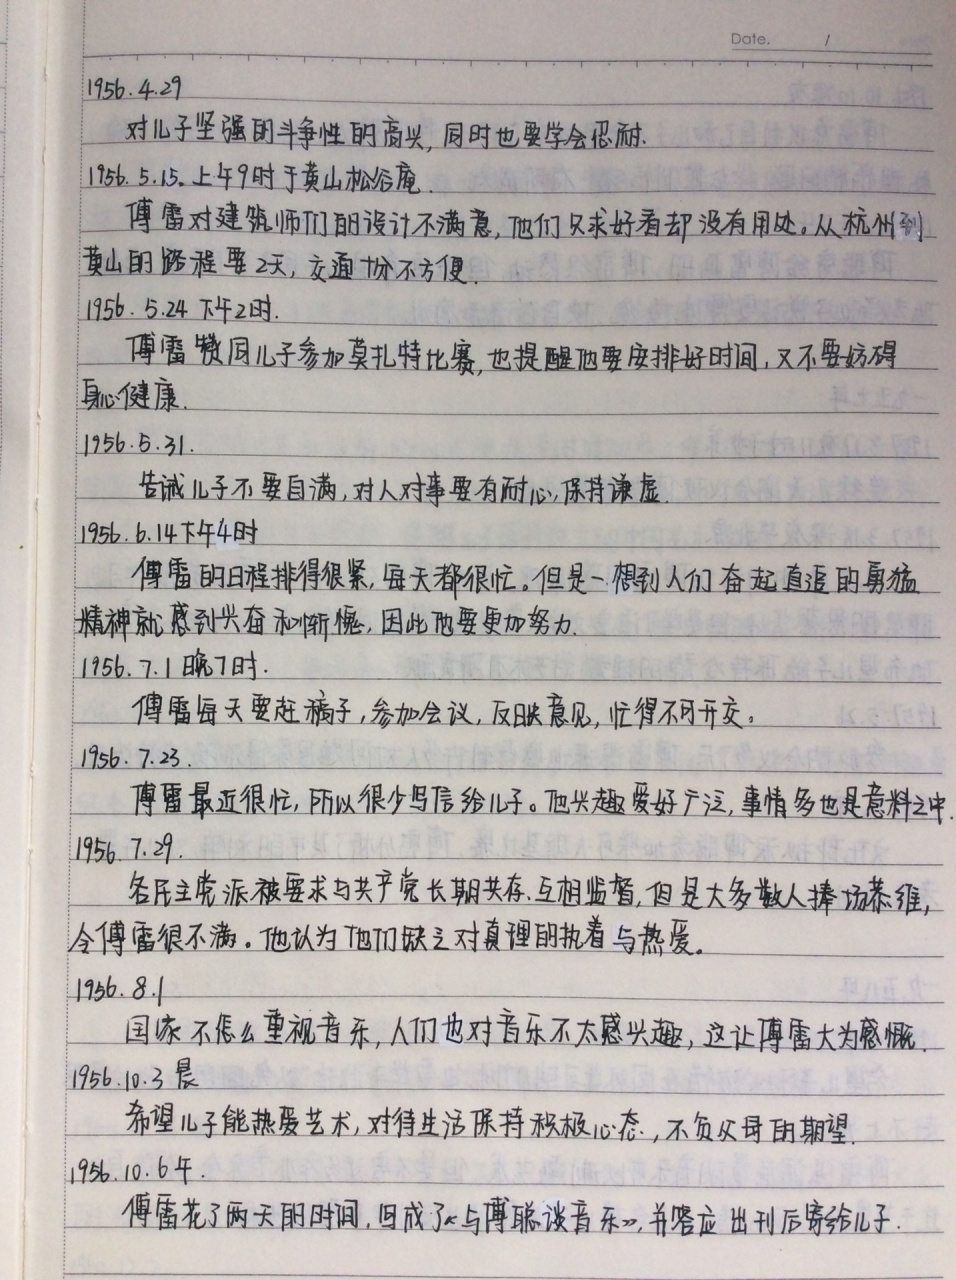 Date. /
1956.4.29
对儿子坚强的斗争性的高兴,同时也要学会忍耐.
1956.5.15.上午9时于黄山松谷庵.
傅雷对建筑师们的设计不满意,他们只求好看却没有用处。从杭州到
黄山的路程要2天,交通十分不方便.
1956.5.24下午2时.
傅雷赞同儿子参加莫扎特比赛,也提醒他要安排好时间,又不要妨碍
身心健康.
1956.5.31.
告诫儿子不要自满,对人对事要有耐心,保持谦虚
1956.6.14下午4时
傅雷的日程排得很紧,每天都很忙。但是一想到人们奋起直追的勇猛
精神就感到兴奋和惭愧,因此他要更加努力.
1956.7.1晚7时.
傅雷每天要赶稿子,参加会议,反映意见,忙得不可开交。
1956.7.23.
傅雷最近很忙,所以很少写信给儿子。他兴趣爱好广泛,事情多也是意料之中.
1956.7.29.
各民主党派被要求与共产党长期共存、互相监督,但是大多数人捧场恭维,
令傅雷很不满。他认为他们缺乏对真理的执着与热爱。
1956.8.1
国家不怎么重视音乐,人们也对音乐不太感兴趣,这让傅雷大为感慨.
1956.10.3晨
希望儿子能热爱艺术,对待生活保持积极心态,不负父母的期望.
1956.10.6午.
傅雷花了两天的时间,写成了《与傅聪谈音乐》,并答应出刊后寄给儿子.